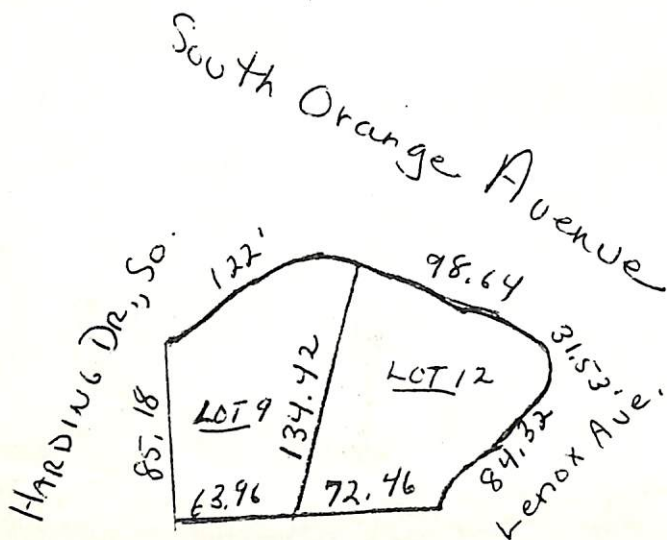 South Orange Avenue
HARDING DR., So.
122'
98.64
31.53'
85.18
LOT 9
134.42
LOT 12
84.32
Lenox Ave.
63.96
72.46